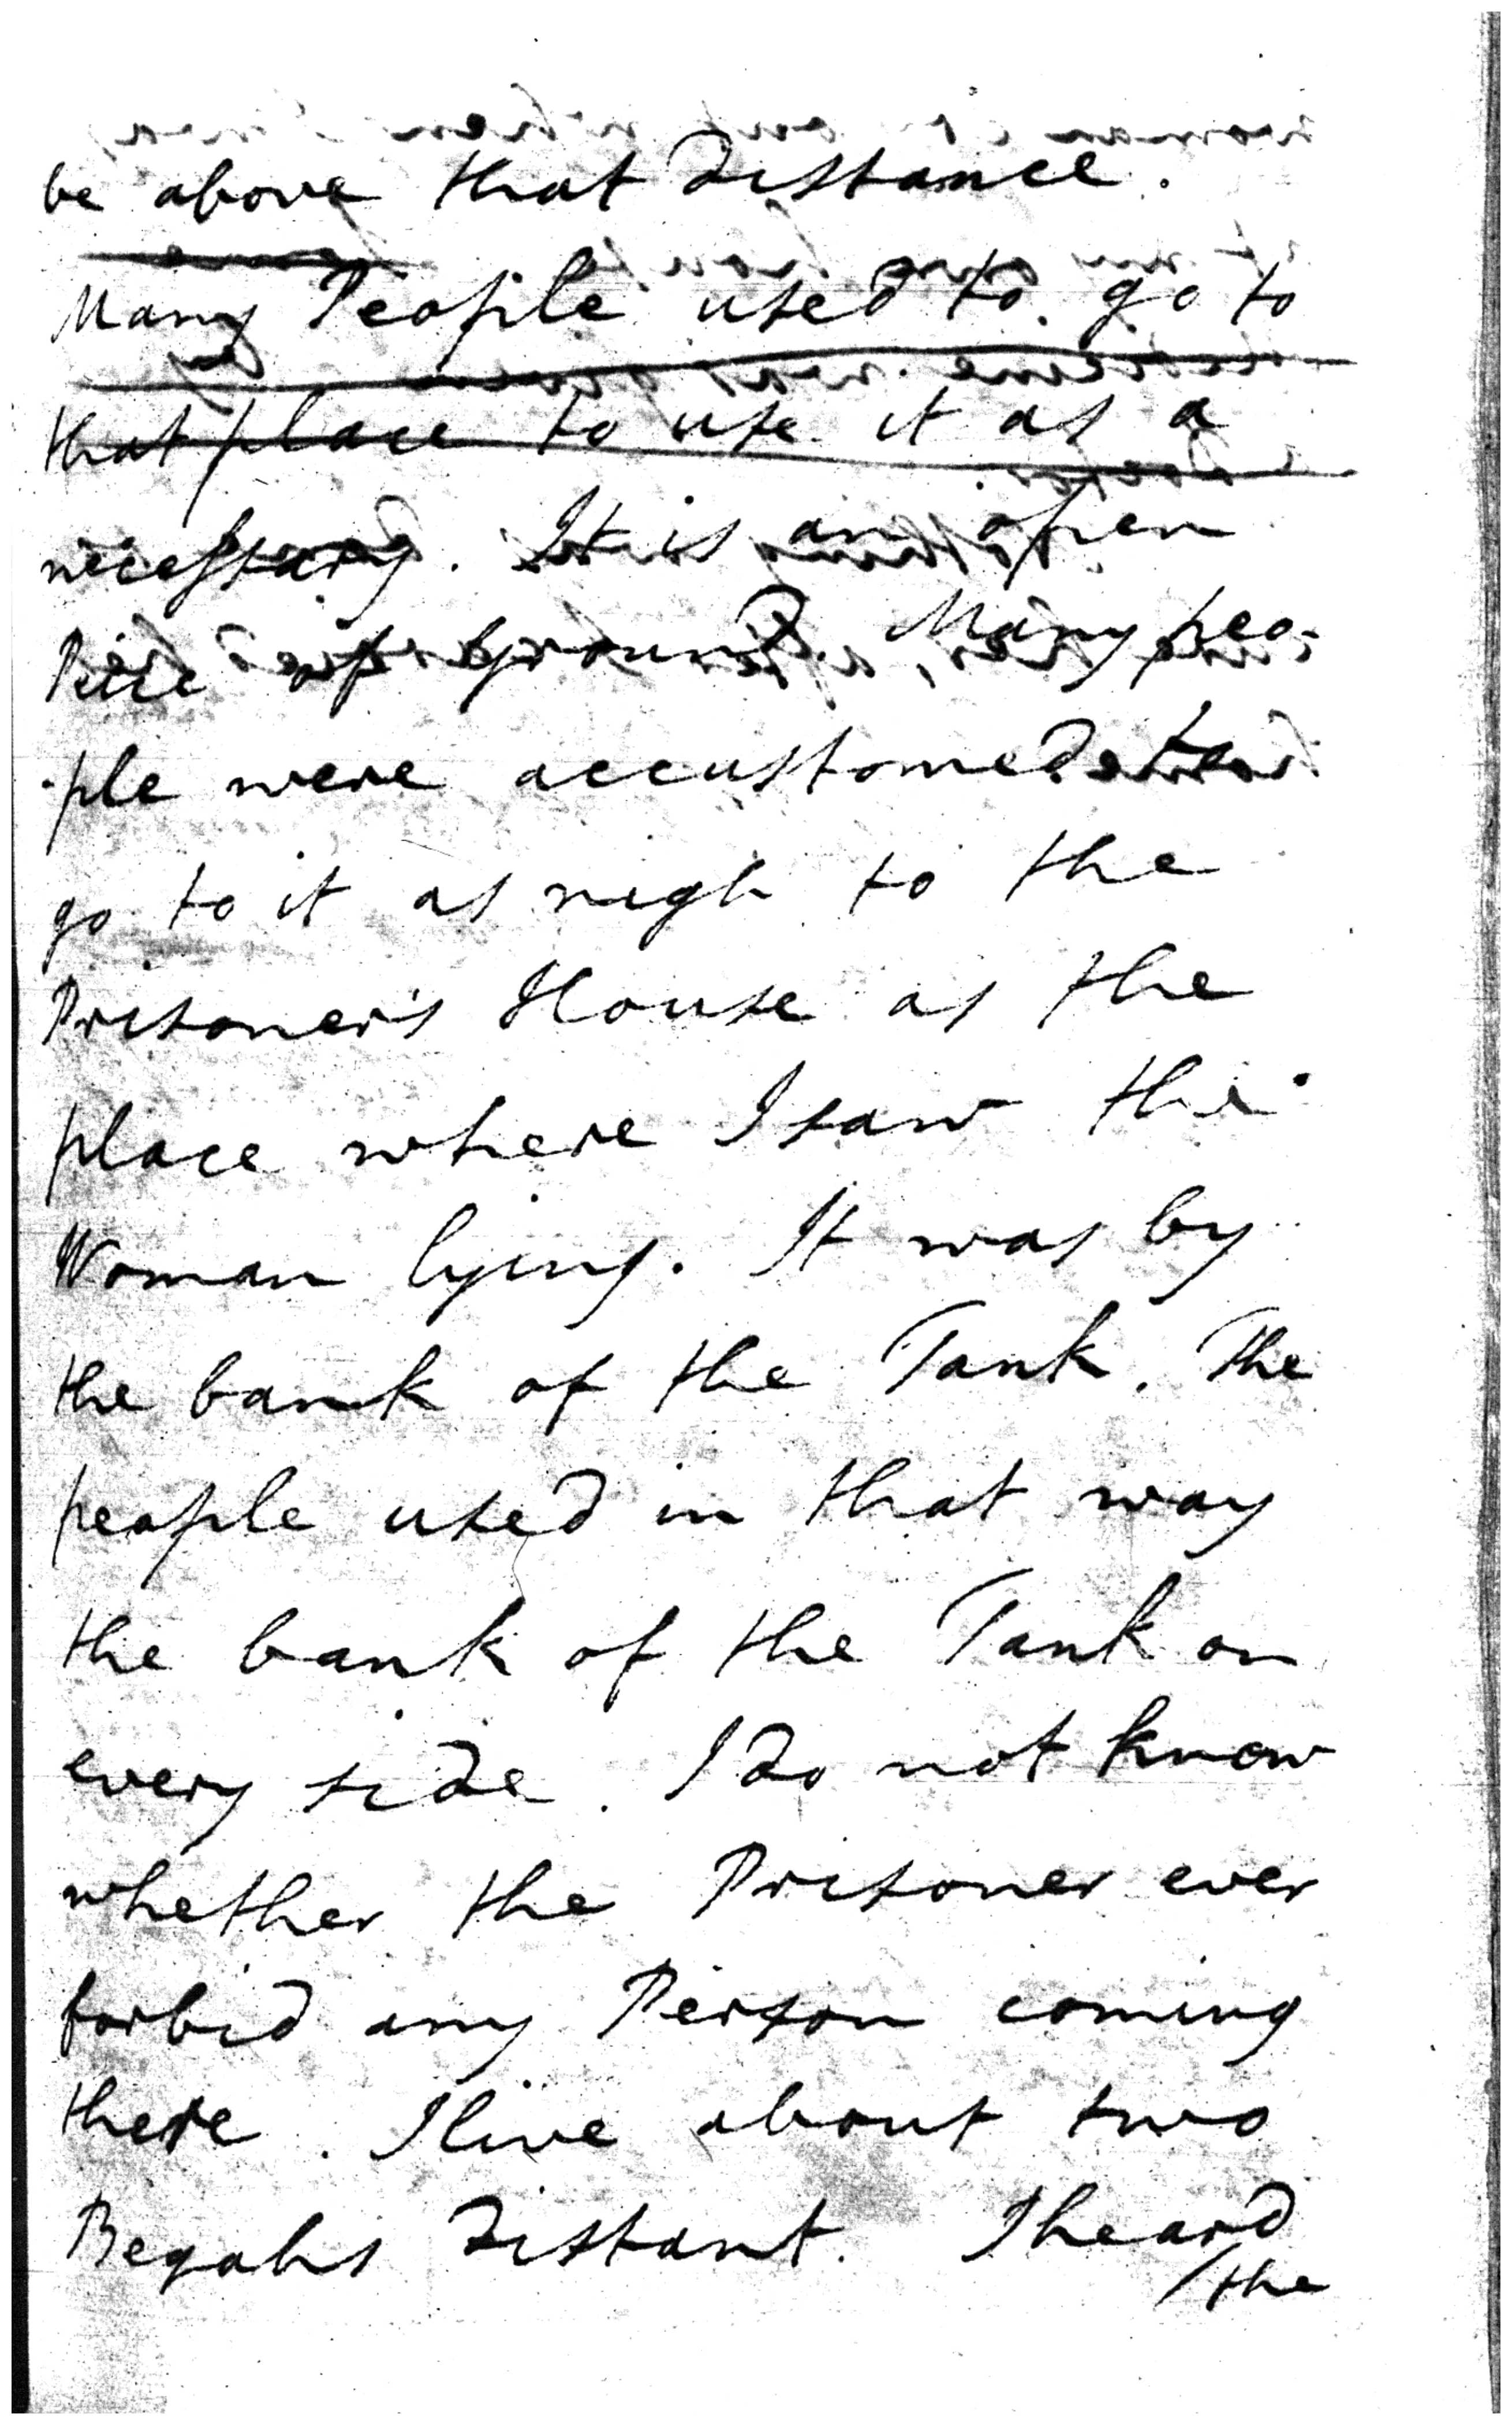 be above that Distance.
Many People used to go to
that place to use it as a
necessary. It is an open
Piece of Ground. Many peo-
-ple were accustomed to
go to it as nigh to the
Prisoner's House as the
place where I saw the
Woman lying. It was by
the bank of the Tank. The
people used in that way
the bank of the Tank on
every side. I do not know
whether the Prisoner ever
forbid any Person coming
there. I live about two
Begahs Distant. I heard
/the